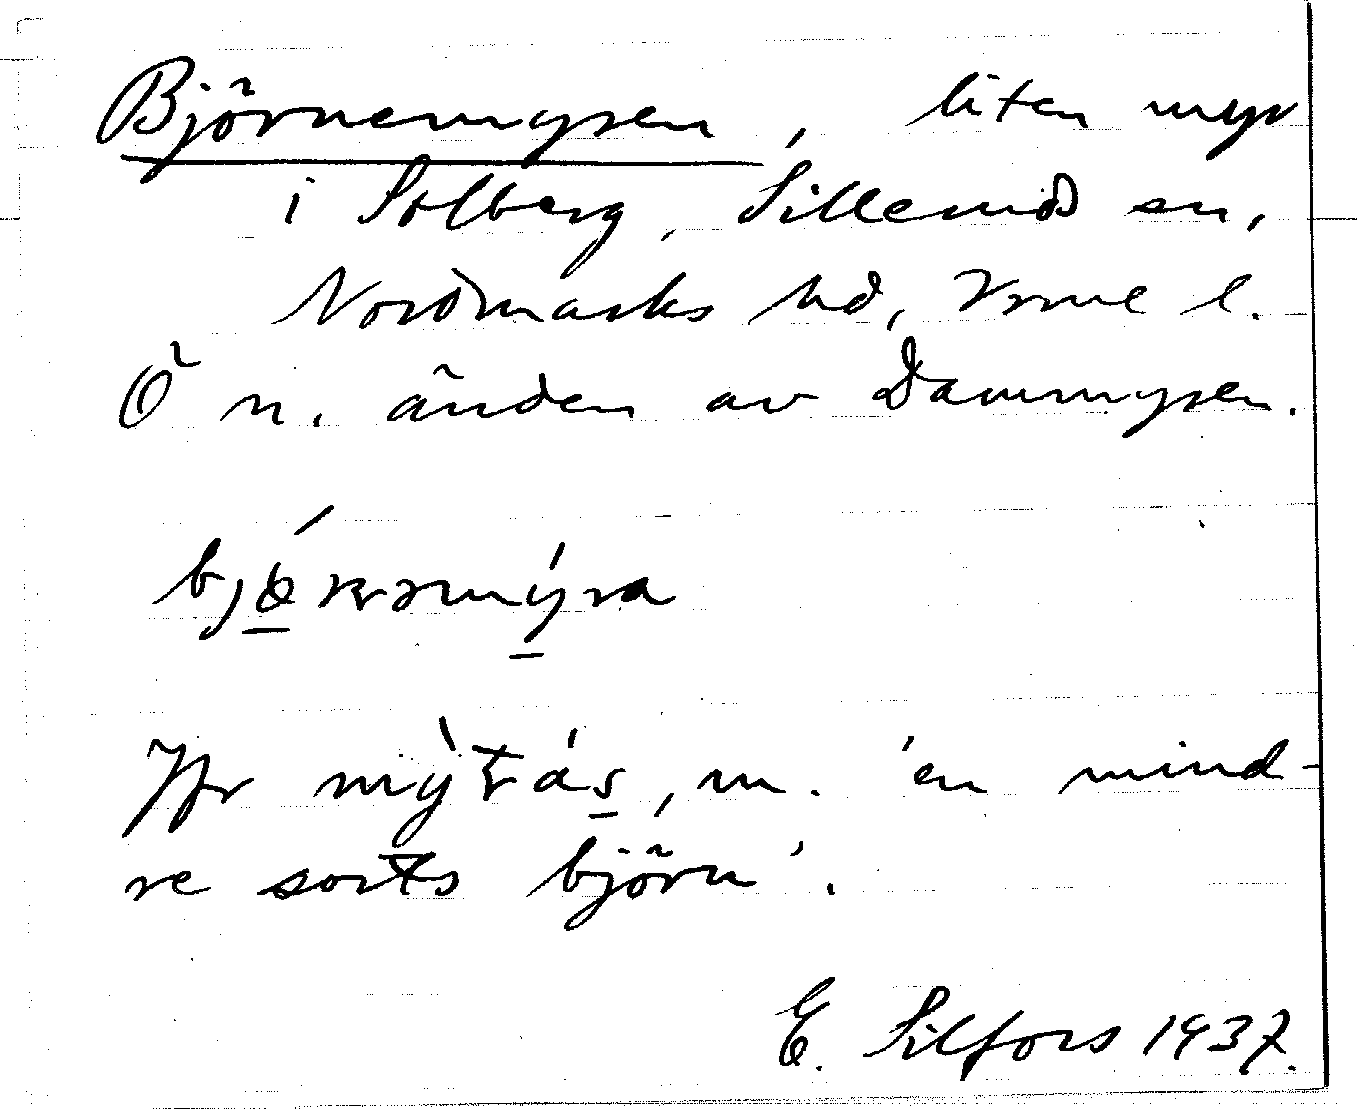 Björnemyren, liten myr
i Solberg, Sillerud sn,
Nordmarks hd, Vrml l.
Ö n. änden av Dammyren.
Jfr mỳr̄ás, m. 'en mind-
re sorts björn'.
E. Silfors 1937.